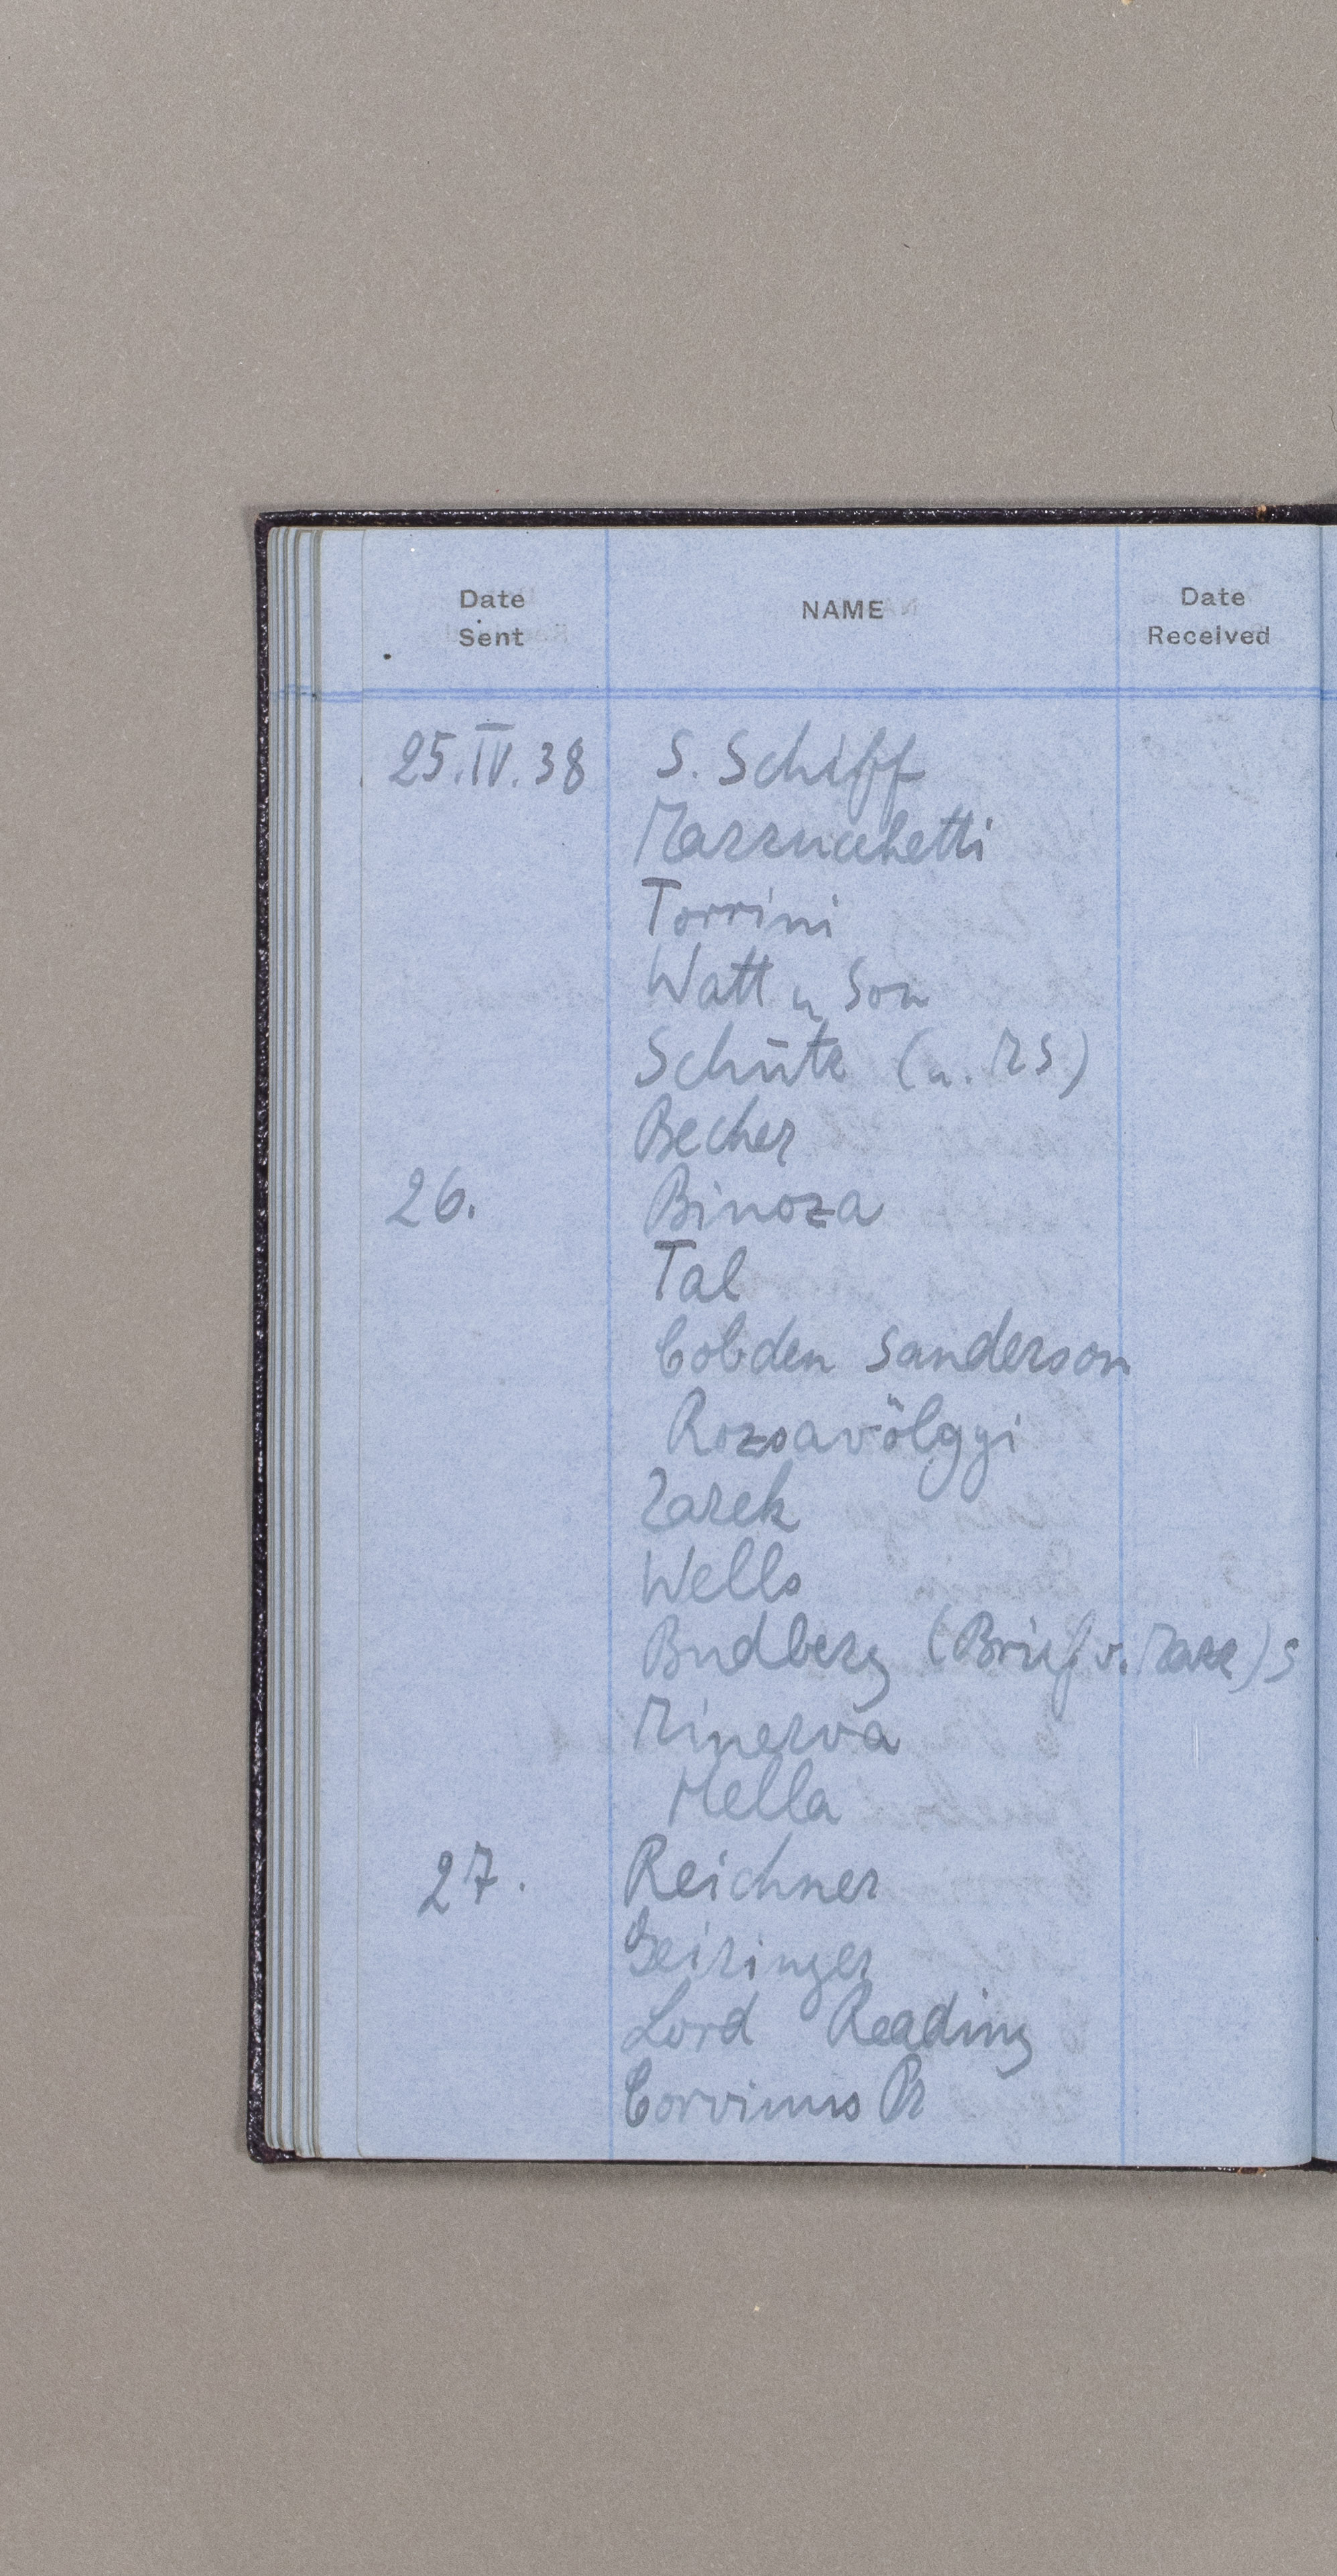 Date Sent NAME Date Received
25.IV.38 S. Schiff
Mazzucchetti
Torrini
Watt u Son
Schütz (u. MS)
Becher
26. Binoza
Tal
Cobden Sanderson
Rozsavölggi
Zarek
Wells
Budberg (Brief v.
Minerva
Mella
27. Reichner
Geiringer
Lord Reading
Corvinus Pr